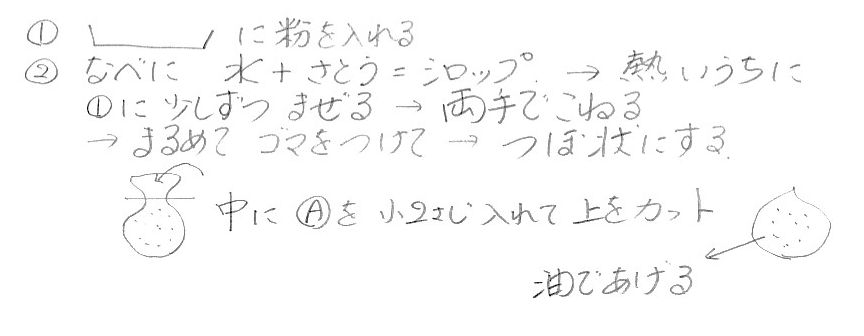 ① に粉を入れる
② なべに 水+さとう=シロップ. → 熱いうちに
①に少しずつ まぜる → 両手でこねる
→ まるめて ゴマをつけて → つぼ状にする.
中に Ⓐを 小2さじ入れて 上をカット
油であげる